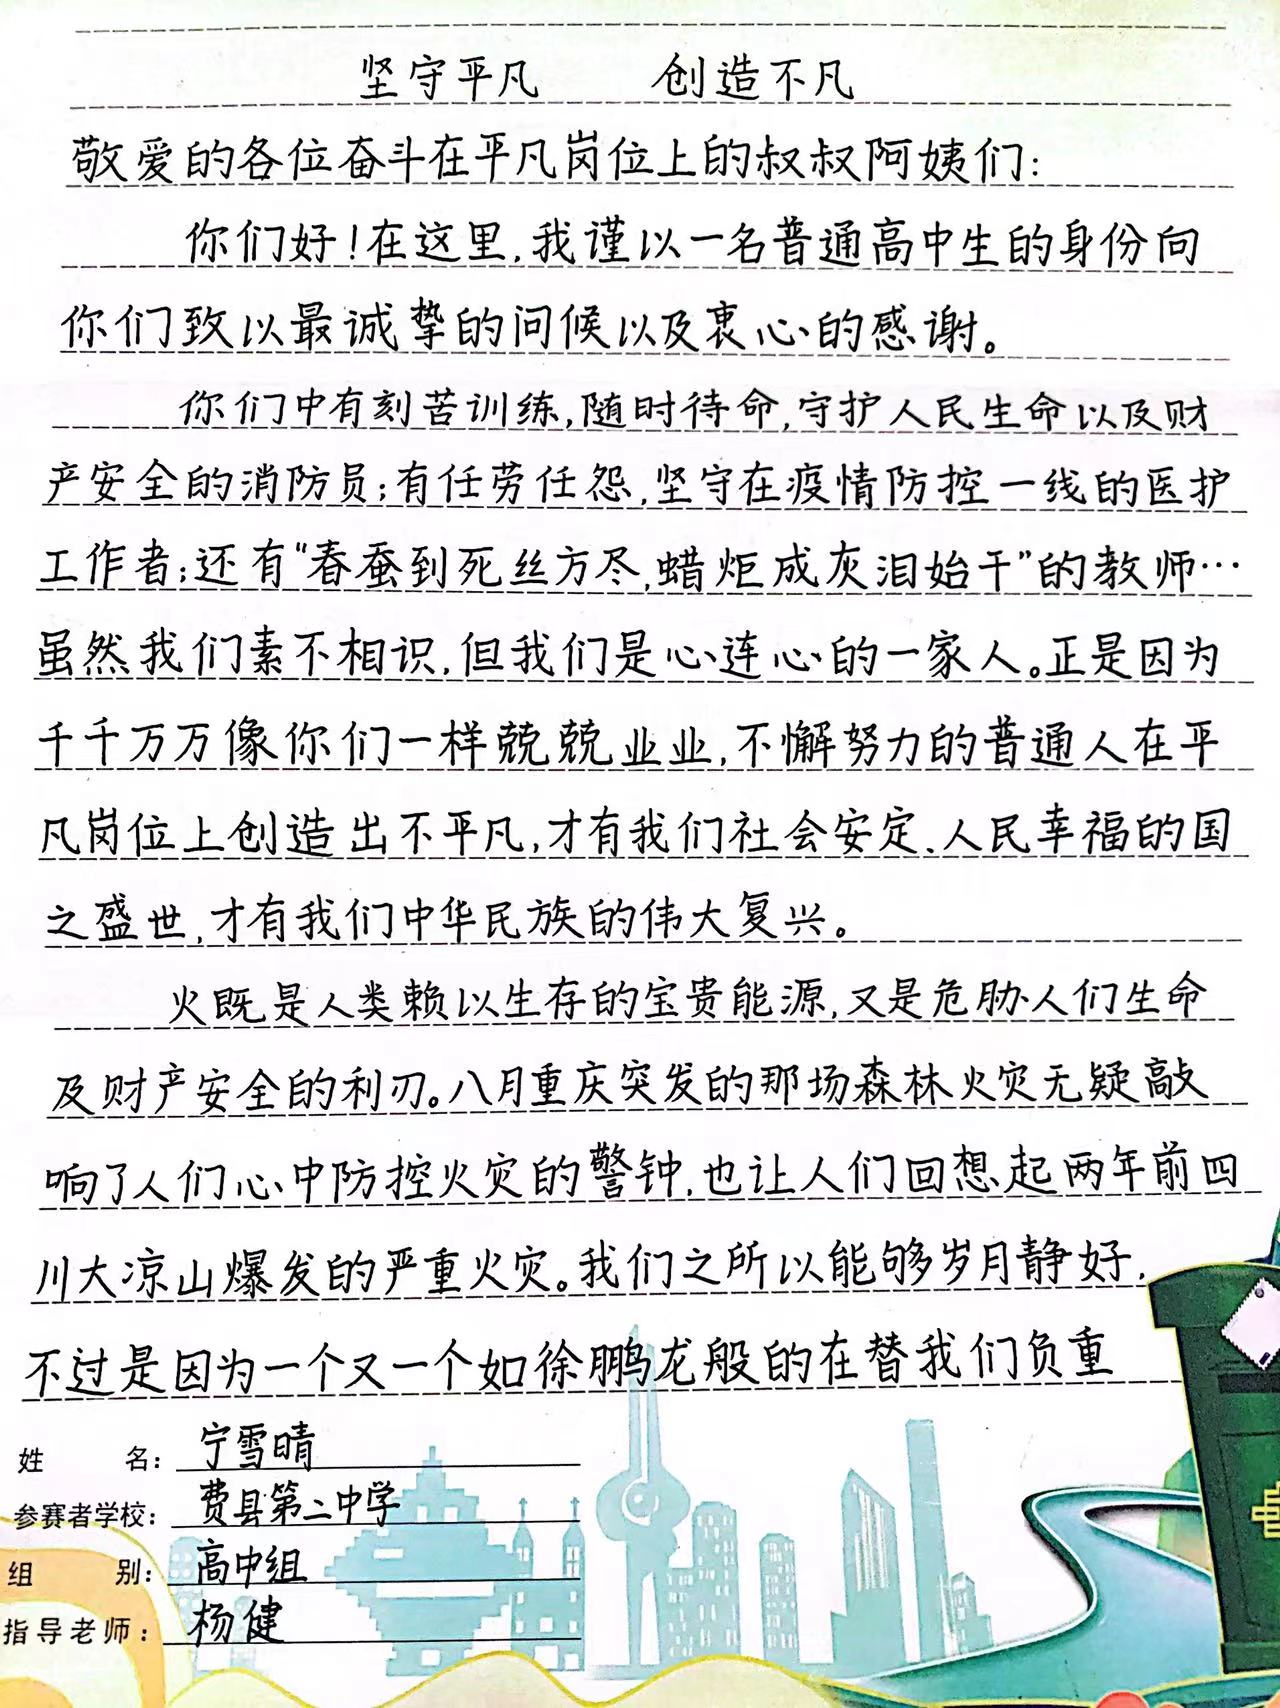 坚守平凡 创造不凡
敬爱的各位奋斗在平凡岗位上的叔叔阿姨们：
你们好！在这里，我谨以一名普通高中生的身份向
你们致以最诚挚的问候以及衷心的感谢。
你们中有刻苦训练，随时待命，守护人民生命以及财
产安全的消防员；有任劳任怨，坚守在疫情防控一线的医护
工作者；还有“春蚕到死丝方尽，蜡炬成灰泪始干”的教师…
虽然我们素不相识，但我们是心连心的一家人。正是因为
千千万万像你们一样兢兢业业，不懈努力的普通人在平
凡岗位上创造出不平凡，才有我们社会安定、人民幸福的国
之盛世，才有我们中华民族的伟大复兴。
火既是人类赖以生存的宝贵能源，又是危胁人们生命
及财产安全的利刃。八月重庆突发的那场森林火灾无疑敲
响了人们心中防控火灾的警钟，也让人们回想起两年前四
川大凉山爆发的严重火灾。我们之所以能够岁月静好，
不过是因为一个又一个如徐鹏龙般的在替我们负重
姓 名：宁雪晴
参赛者学校：费县第二中学
组 别：高中组
指导老师：杨健